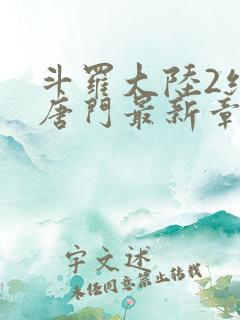 斗羅大陸2
唐門最新章
宇文述
未经同意禁止转载